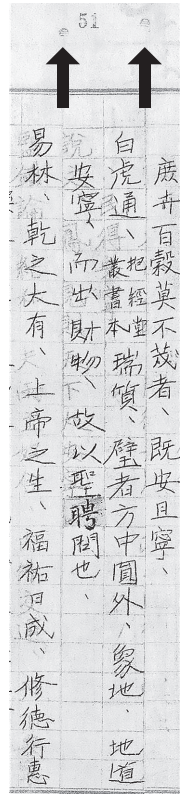 51
庶卉百穀莫不茂者、既安且寧、
白虎通、抱經堂叢書本 瑞質、璧者方中圓外、象地、地道
安寧、而出財物、故以聖聘問也、
易林、乾之大有、上帝之生、福祐日成、修德行惠